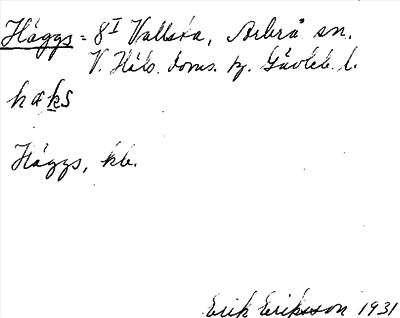 Häggs = 8ᴵ Vallsta, Arbrå sn.
V. Häls. doms. hg. Gävleb. l.
hæks
Häggs, kb.
Erik Eriksson 1931